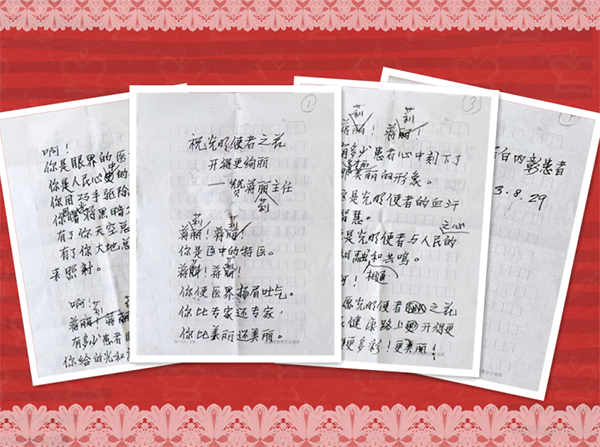 啊！
你是眼界的医
你是人民心中的
你用巧手驱除
将黑暗
有了你天空
有了你大地
照射。
啊！
莉
蒋丽！蒋丽
有多少患者
你给的光和
①
祝光明使者之花
开得更绚丽
——赞蒋丽主任
莉
莉 莉
蒋丽！蒋丽！
你是医中的特医。
莉 莉
蒋丽！蒋丽！
你使医界扬眉吐气。
你比专家还专家，
你比美丽还美丽。
③
莉 莉
蒋丽！蒋丽！
有多少患者心中刻下了
美丽的形象。
是光明使者的血汗
智慧。
之心
是光明使者与人民的
融和共鸣。
相通
愿光明使者之花
健康路上开得更
更多彩！更美丽！
白内障患者
3.8.29